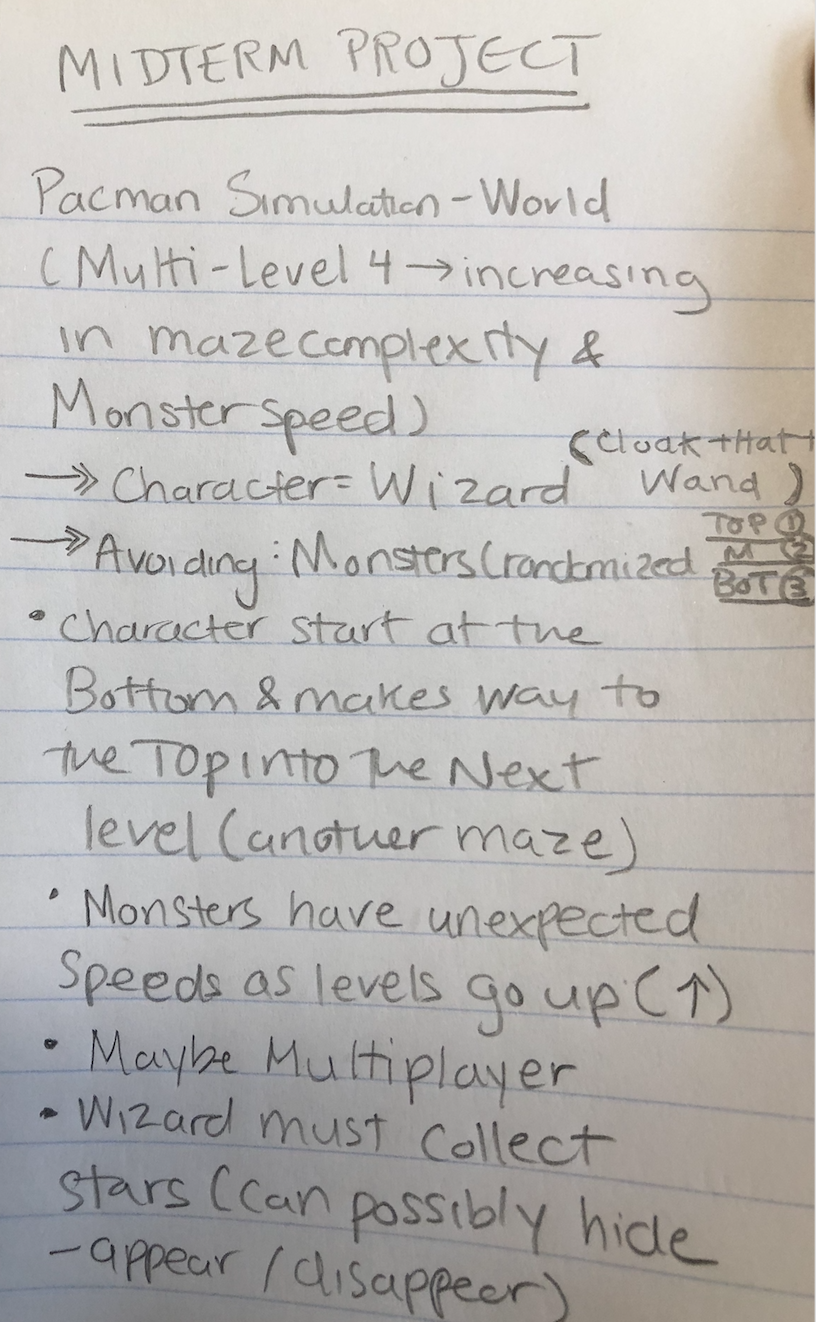 MIDTERM PROJECT
Pacman Simulation-World
(Multi-Level 4 → increasing
in maze complexity &
Monster speed)
(Cloak + Hat +
→> Character = Wizard Wand)
TOP ①
→> Avoiding: Monsters (randomized M ②
BOT ③
• Character start at the
Bottom & makes way to
the TOP into the Next
level (another maze)
• Monsters have unexpected
Speeds as levels go up (↑)
• Maybe Multiplayer
• Wizard must collect
stars (can possibly hide
- appear / disappeer)